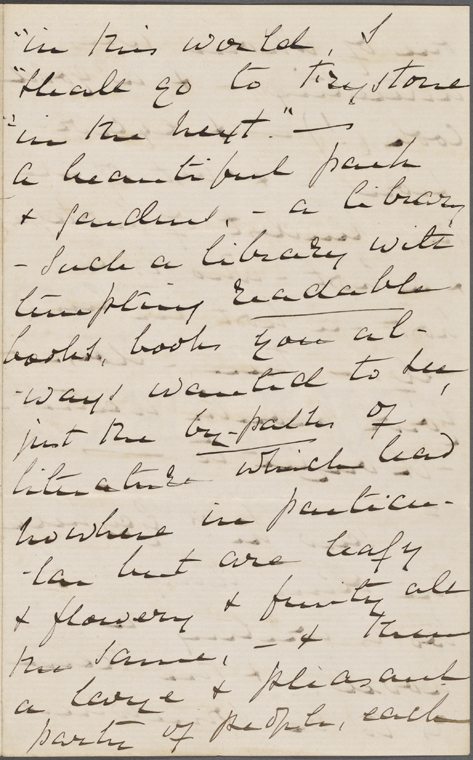 "in this world, I
"shall go to Fryston
"in the next." —
a beautiful park
& gardens, - a library
- such a library with
tempting readable
books, books you al-
-ways wanted to see,
just the by-paths of
literature which lead
nowhere in particu-
-lar but are leafy
& flowery & fruity all
the same, - & then
a large & pleasant
party of people, each